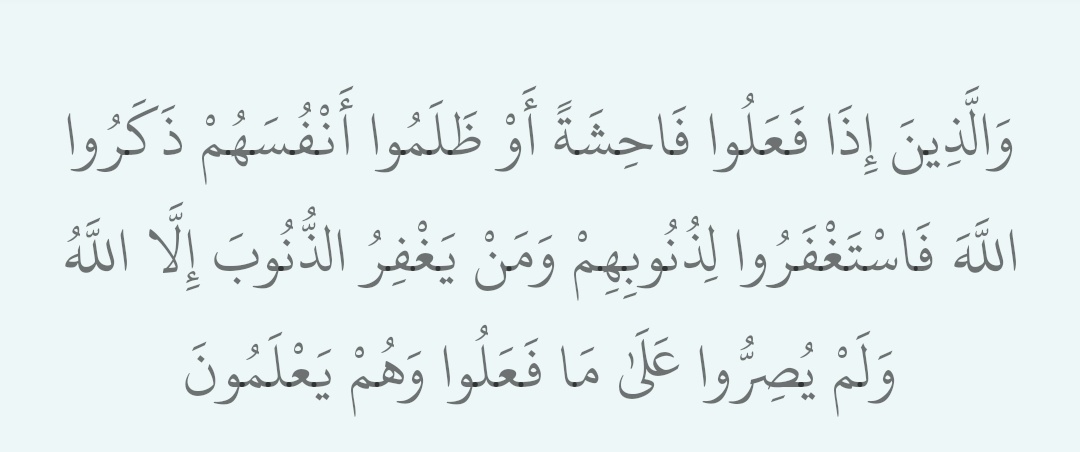 وَالَّذِينَ إِذَا فَعَلُوا فَاحِشَةً أَوْ ظَلَمُوا أَنْفُسَهُمْ ذَكَرُوا
اللَّهَ فَاسْتَغْفَرُوا لِذُنُوبِهِمْ وَمَنْ يَغْفِرُ الذُّنُوبَ إِلَّا اللَّهُ
وَلَمْ يُصِرُّوا عَلَىٰ مَا فَعَلُوا وَهُمْ يَعْلَمُونَ